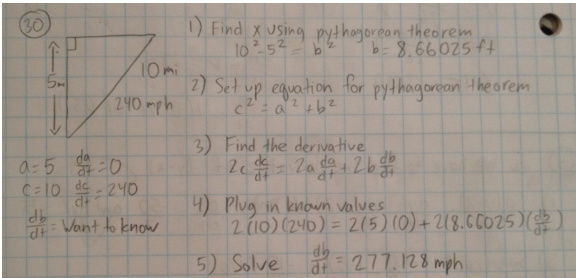 30
5m
10 mi
240 mph
a=5 da/dt = 0
c=10 dc/dt = 240
db/dt = Want to know
1) Find x using pythagorean theorem
10²-5² = b² b= 8.66025 ft
2) Set up equation for pythagorean theorem
c² = a² + b²
3) Find the derivative
2c dc/dt = 2a da/dt + 2b db/dt
4) Plug in known values
2(10)(240) = 2(5)(0) + 2(8.66025)(db/dt)
5) Solve db/dt = 277.128 mph